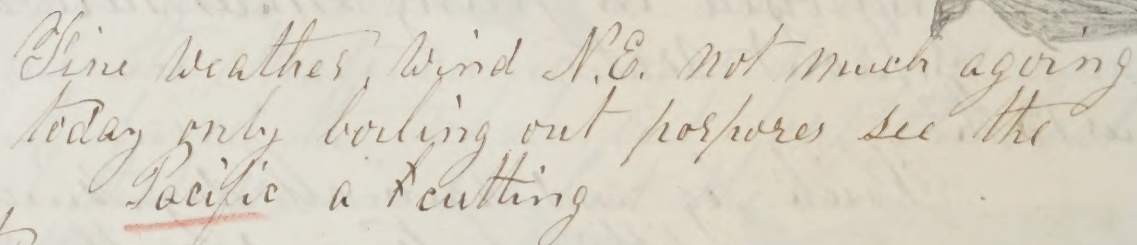 Fine weather, Wind N.E. not much agoing
today only boiling out porpores see the
Pacific a cutting